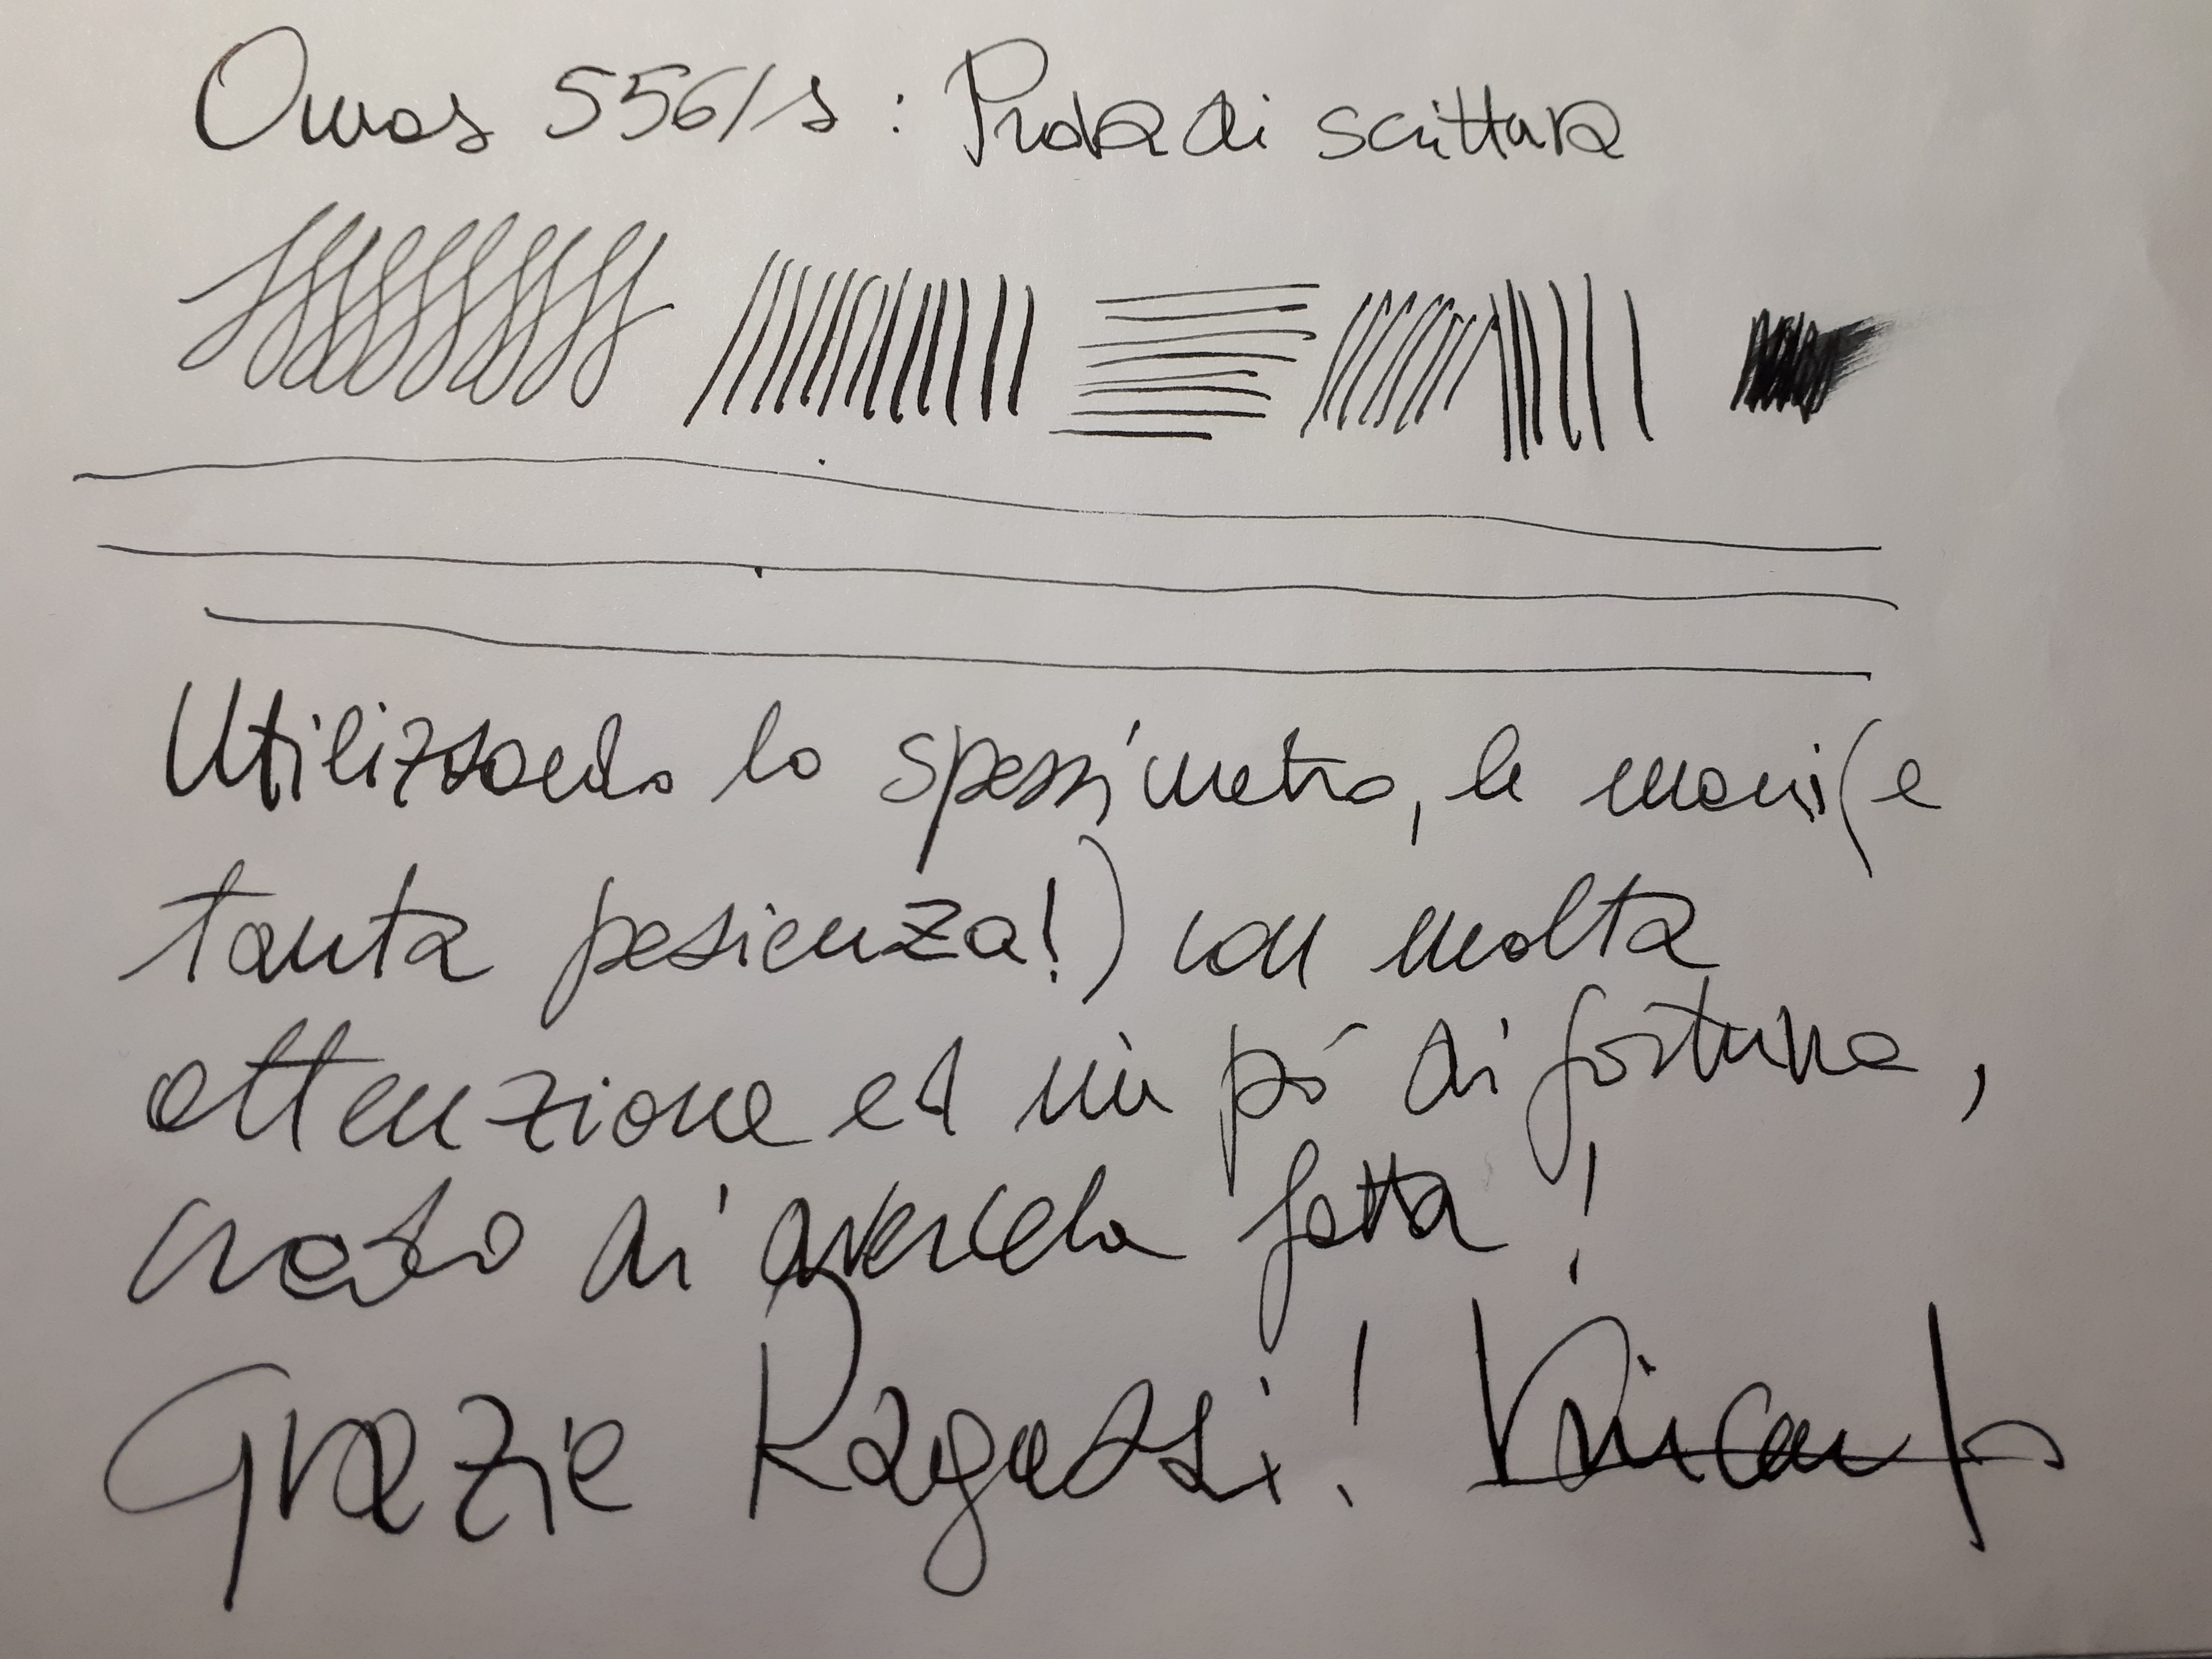 Omas 556/s : Prova di scrittura
Utilizzando lo spessimetro, le mani (e
tanta pasienza!) con molta
attenzione ed un pó di fortuna,
credo di avercela fatta!
Grazie Ragazzi!